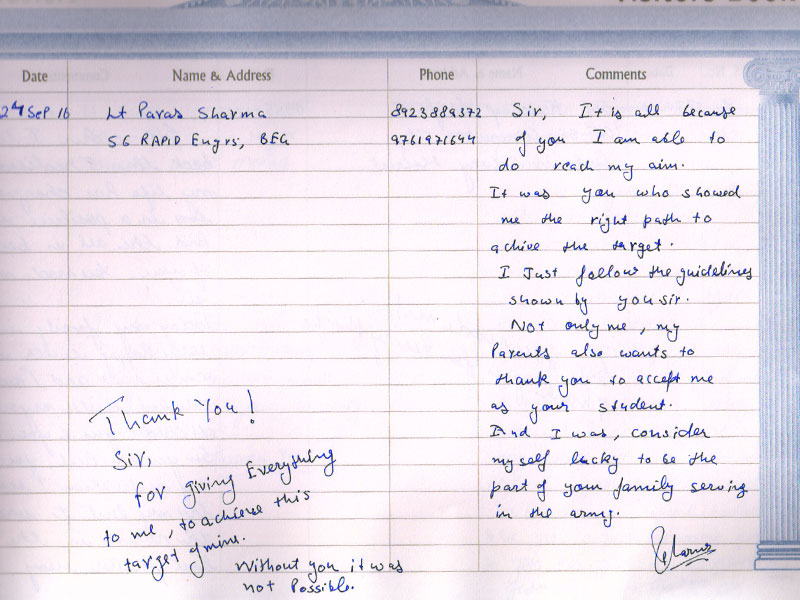 Visitors Book
Date Name & Address Phone Comments
24 Sep 16 Lt Paras Sharma 8923889372 Sir, It is all because
56 RAPID Engrs, BEG 9761971644 of you I am able to
do reach my aim.
It was you who showed
me the right path to
achive the target.
I Just follow the guidelines
shown by you sir.
Not only me, my
Parents also wants to
thank you to accept me
as your student.
And I was, consider
myself lucky to be the
part of your family serving
in the army.
Thank You!
Sir,
for giving Everything
to me, to achieve this
target of mine.
Without you it was
not Possible.